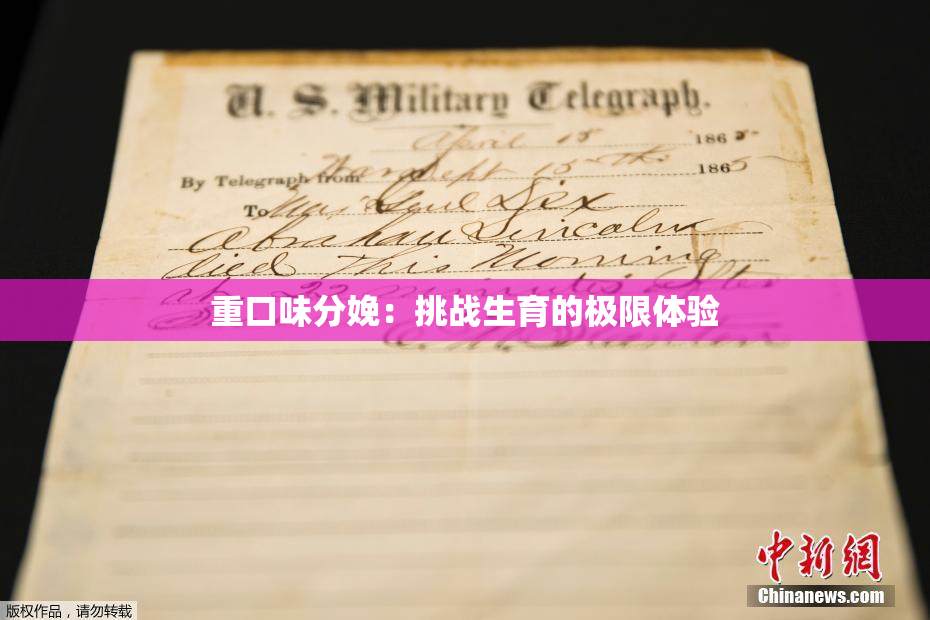 U. S. Military Telegraph.
April 15 1865
By Telegraph from War Dept 15th 1865
To Maj Genl Dix
Abraham Lincoln
died This Morning
at 22 minutes after
重口味分娩：挑战生育的极限体验
中新网
Chinanews.com
版权作品，请勿转载